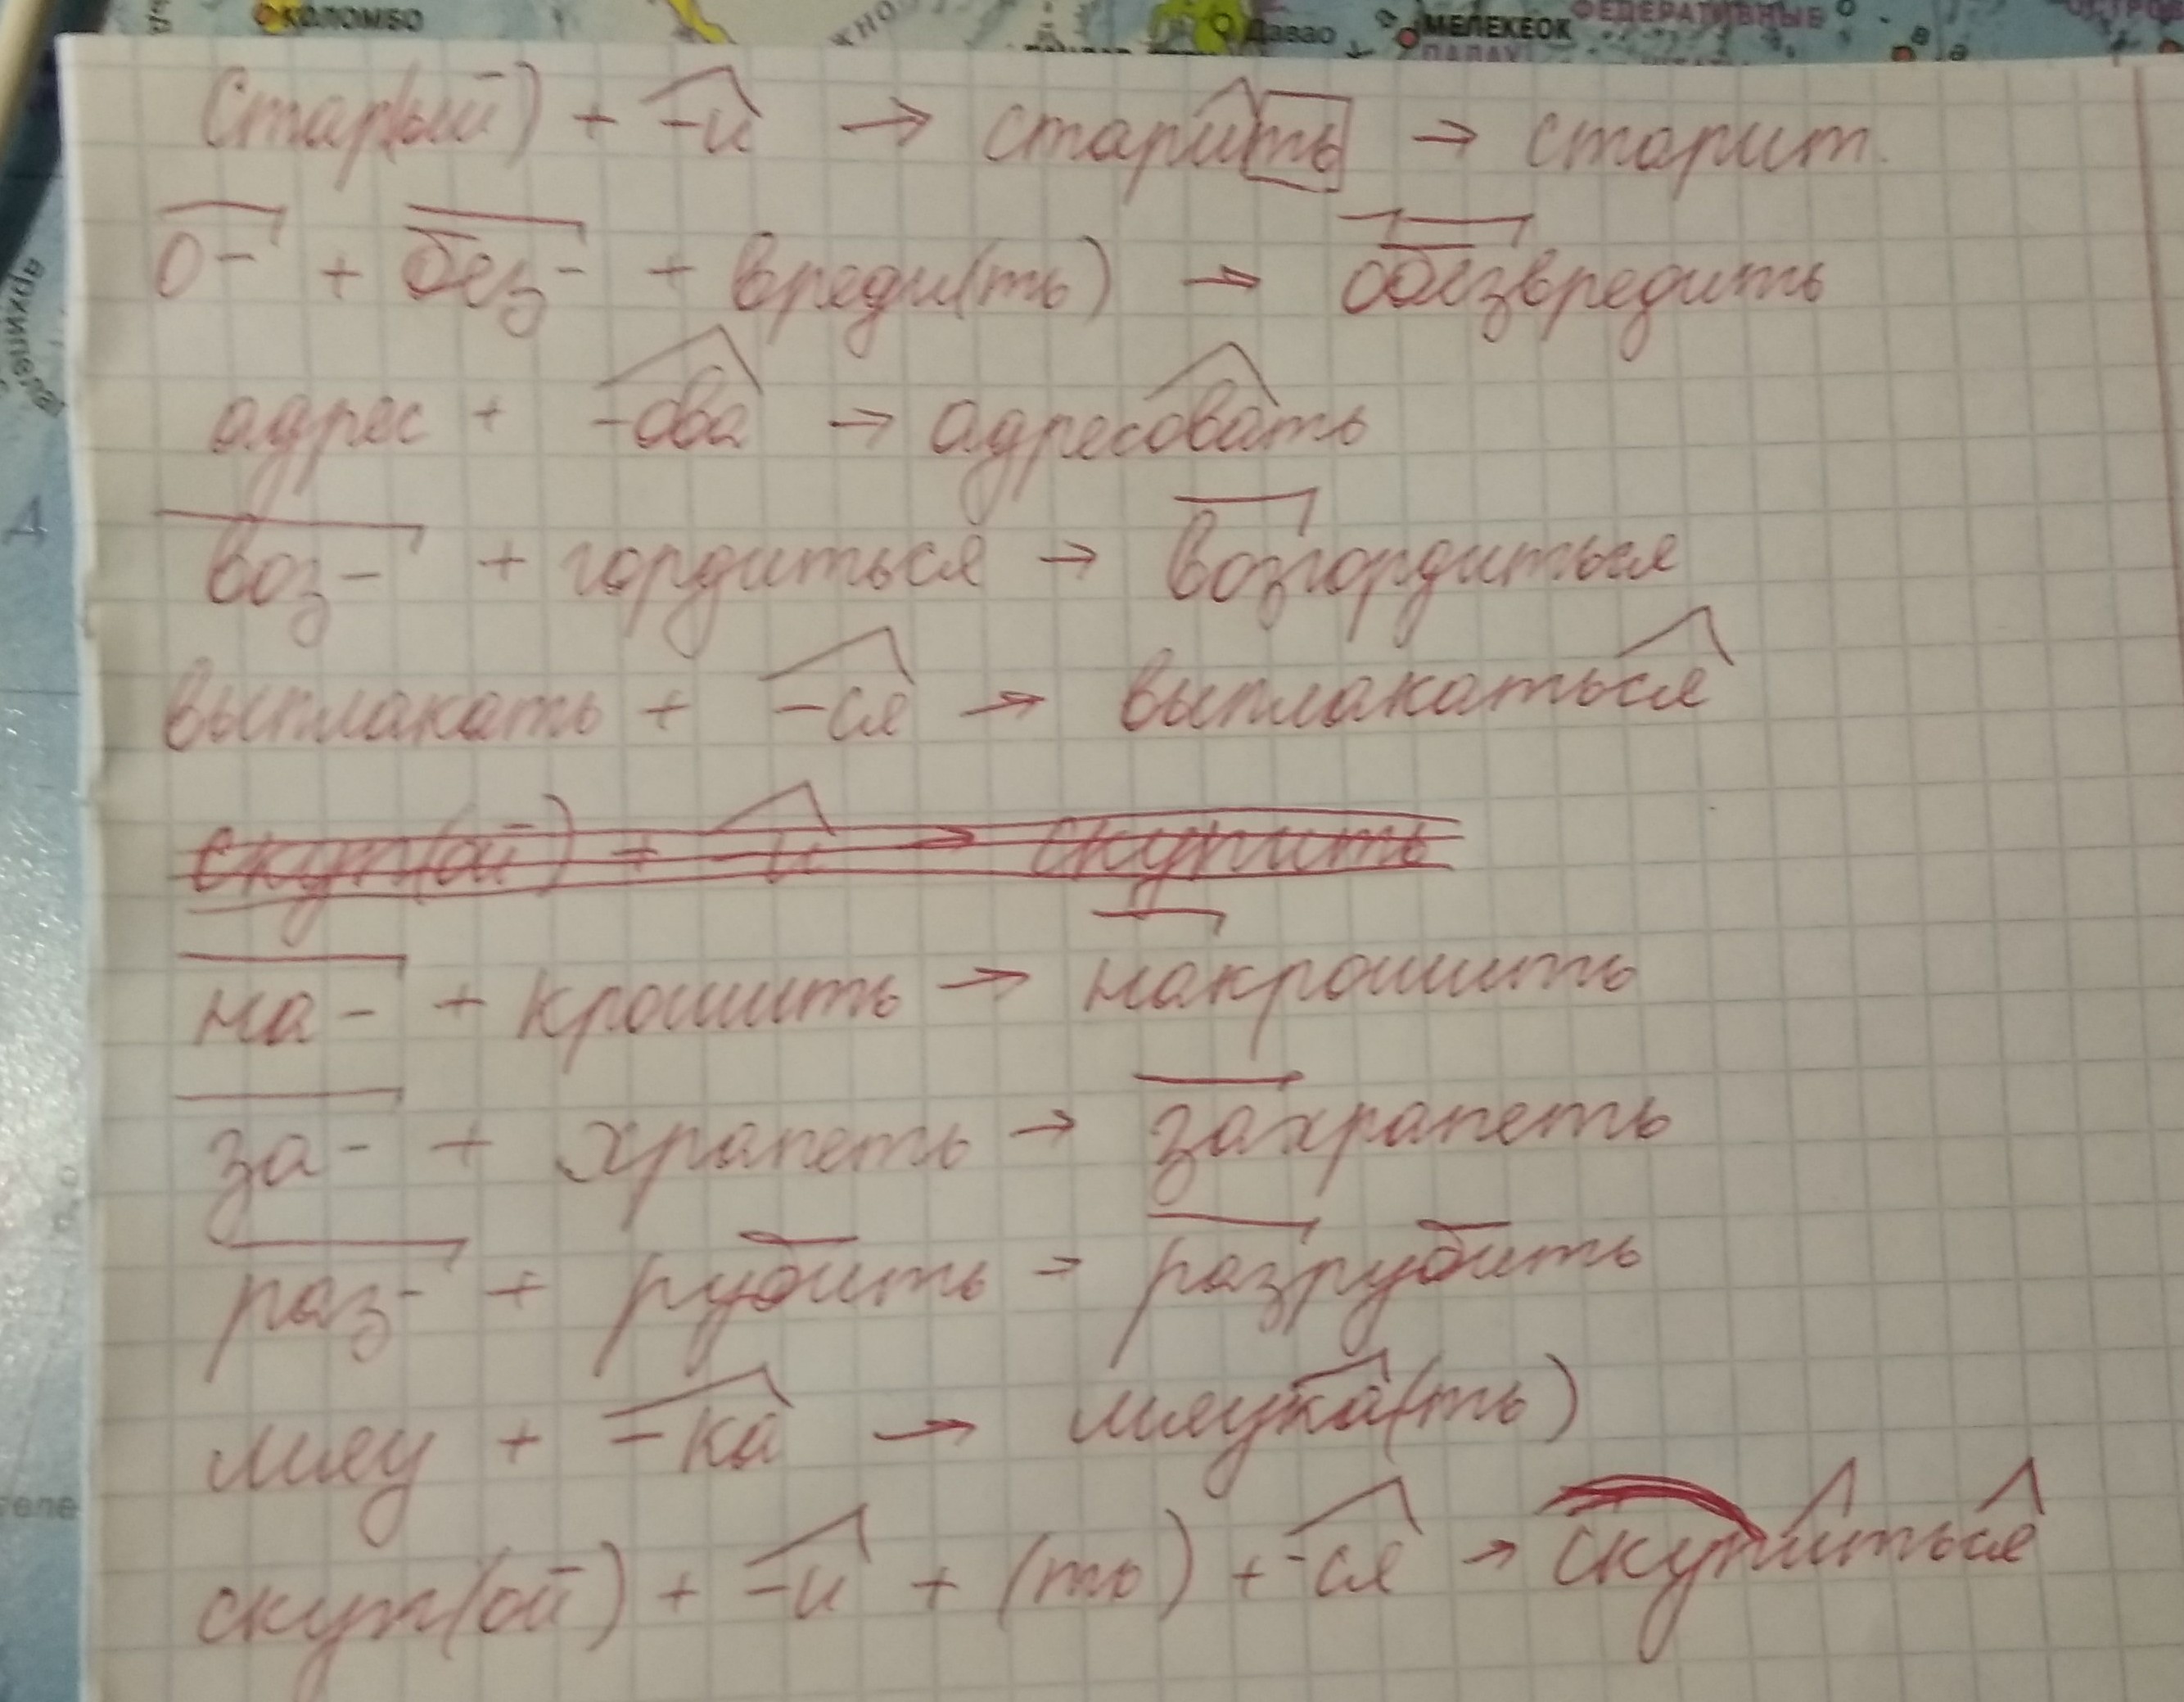 КОЛОМБО
Давао
МЕЛЕКЕОК
ФЕДЕРАТИВНЫЕ
ПАЛАУ
Стар(ый) + -и → старить → старит.
о- + без- + вреди(ть) → обезвредить
адрес + -ова → адресовать
воз- + гордиться → возгордиться
выплакать + -ся → выплакаться
скуп(ой) + -и → скупить
на- + крошить → накрошить
за- + храпеть → захрапеть
раз- + рубить - разрубить
мяу + -ка → мяука(ть)
скуп(ой) + -и + (ть) + -ся → скупиться